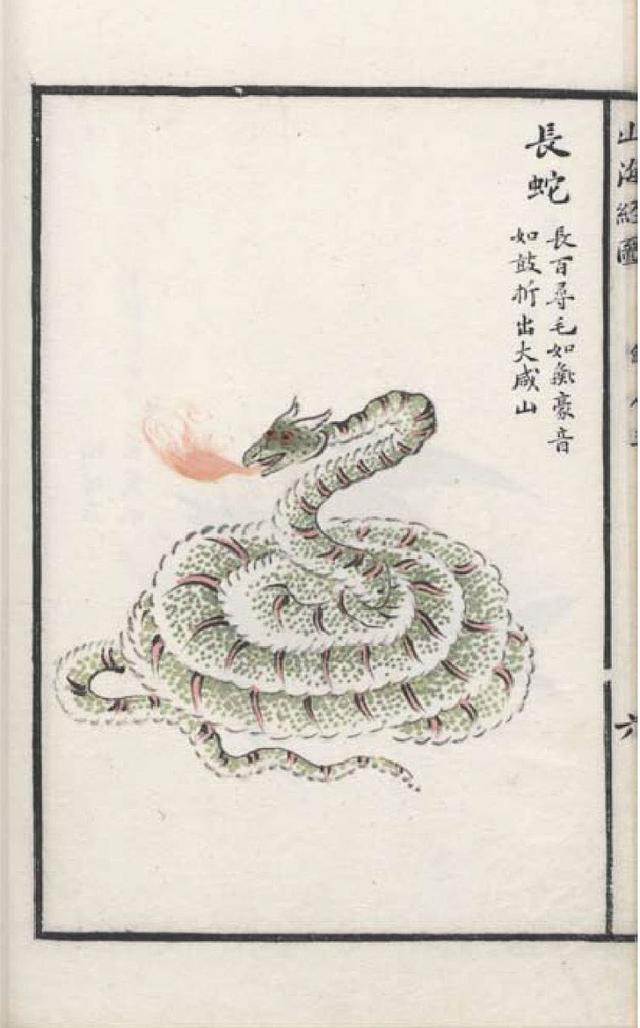 山海經圖
六
長蛇
長百尋毛如彘豪音
如鼓折出大咸山